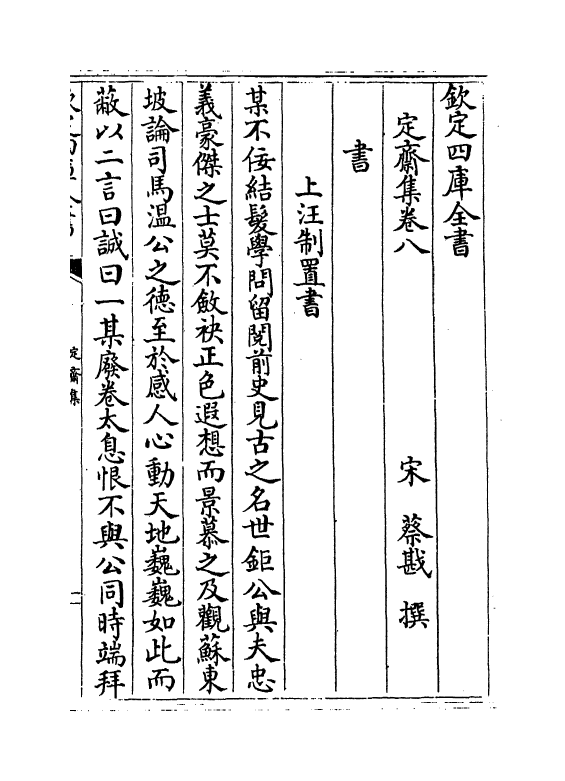 欽定四庫全書
定齋集卷八
宋　蔡戡　撰
書
上汪制置書
某不佞結髮學問留閱前史見古之名世鉅公與夫忠
義豪傑之士莫不斂袂正色遐想而景慕之及觀蘇東
坡論司馬溫公之德至於感人心動天地巍巍如此而
蔽以二言曰誠曰一某廢卷太息恨不與公同時端拜
定齋集